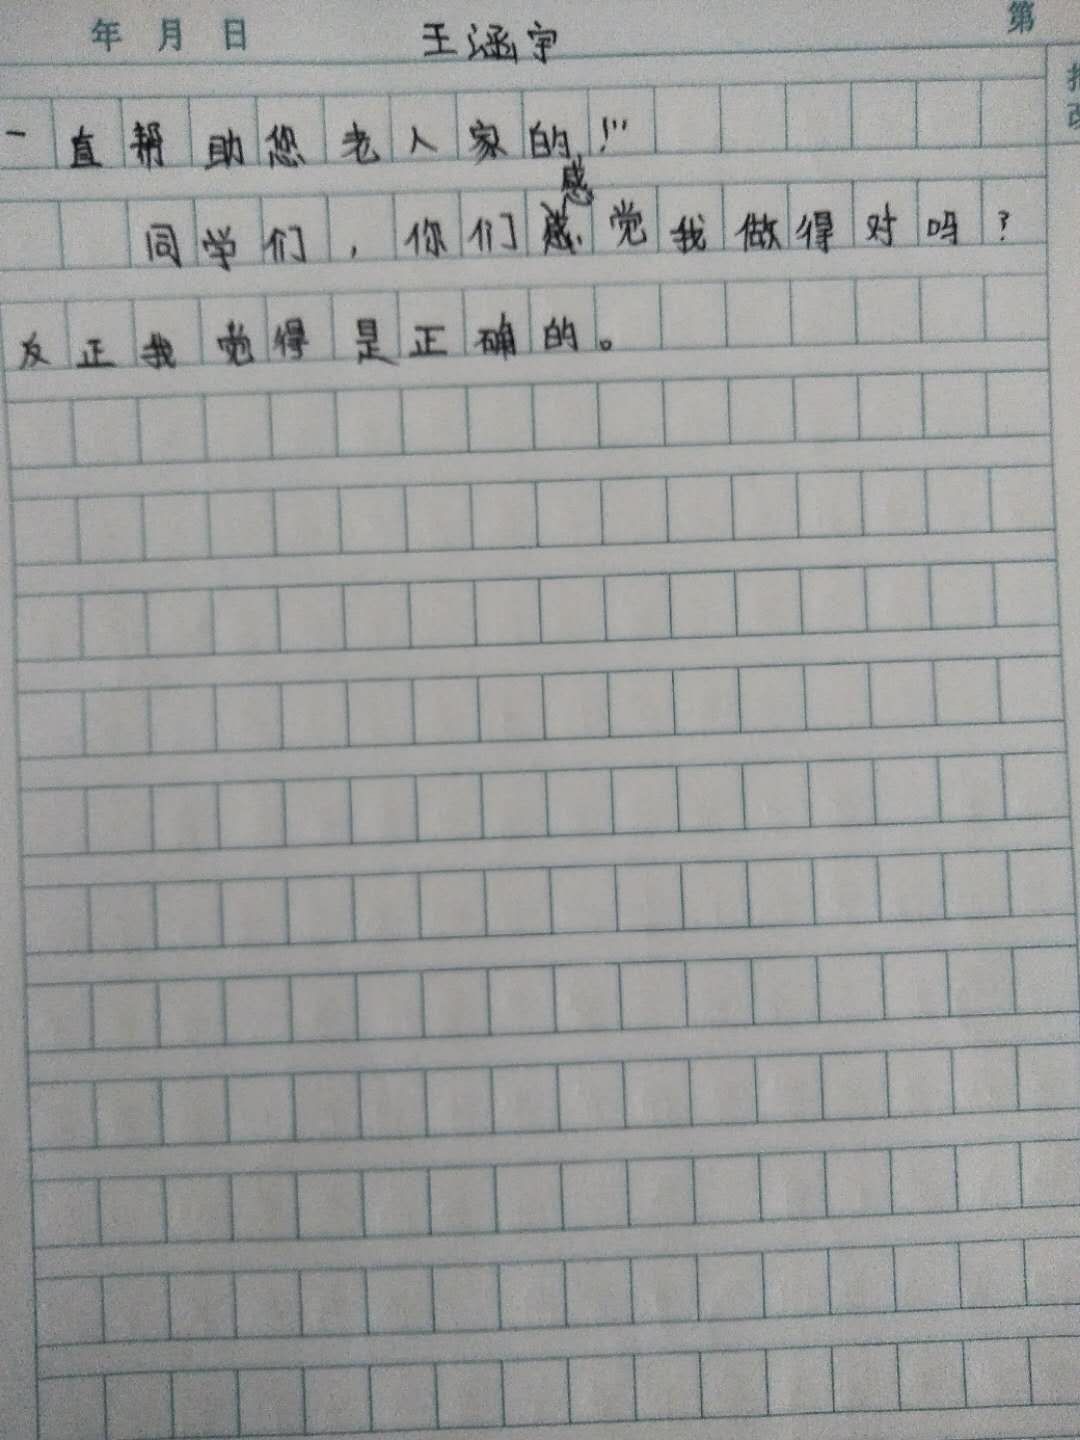 年 月 日 王涵宇 第
批
改
一直帮助您老人家的!"
感
同学们，你们感觉我做得对吗?
反正我觉得是正确的。